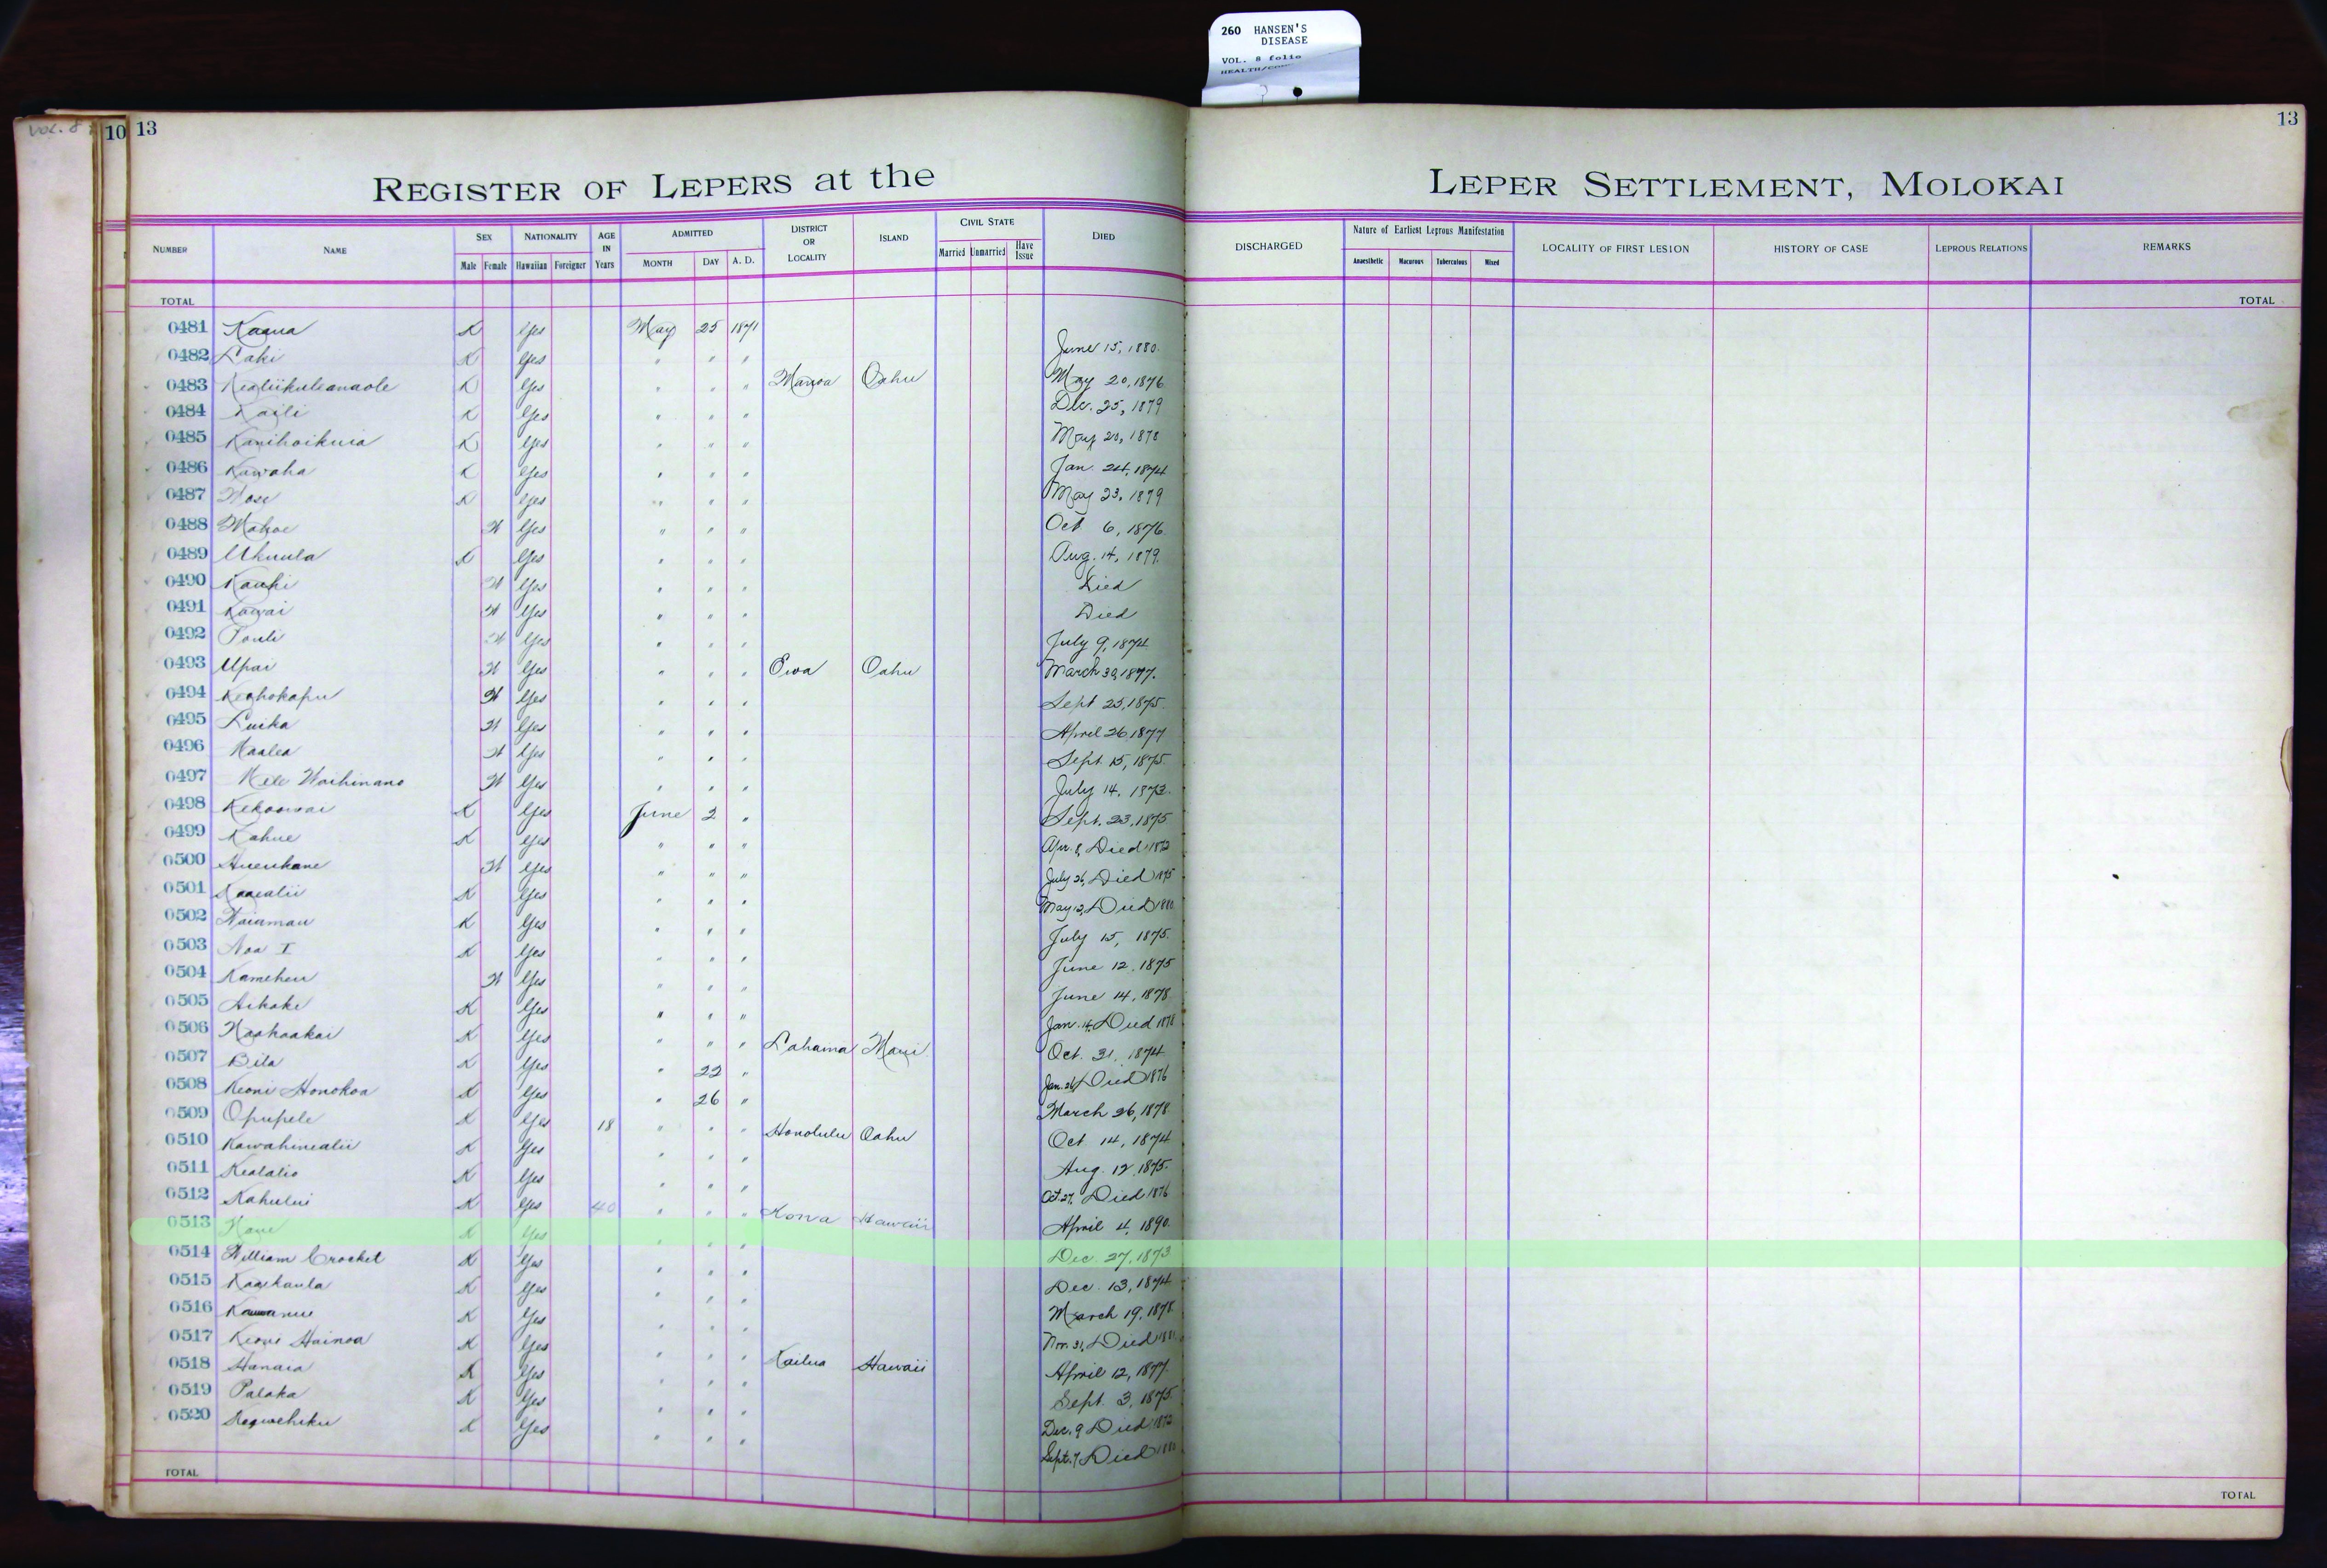 260 HANSEN'S
DISEASE
VOL. 8 folio
VOL. 8
10 13
13
REGISTER OF LEPERS at the
LEPER SETTLEMENT, MOLOKAI
NUMBER NAME SEX Male Female NATIONALITY Hawaiian Foreigner AGE IN Years ADMITTED MONTH DAY A. D. DISTRICT OR LOCALITY ISLAND CIVIL STATE Married Unmarried Have Issue DIED
DISCHARGED Nature of Earliest Leprous Manifestation Anaesthetic Macurous Tuberculous Mixed LOCALITY OF FIRST LESION HISTORY OF CASE LEPROUS RELATIONS REMARKS
TOTAL
TOTAL
0481 Kaaua K Yes May 25 1871
0482 Laki K Yes " " " June 15, 1880.
0483 Kealiikuleanaole K Yes " " " Manoa Oahu May 20, 1876
0484 Kaili K Yes " " " Dec. 25, 1879
0485 Kanihoikuia K Yes " " " May 20, 1878
0486 Kawaha K Yes " " " Jan. 24, 1874
0487 Nose K Yes " " " May 23, 1879
0488 Mahoe W Yes " " " Oct 6, 1876.
0489 Ukuula K Yes " " " Aug. 14, 1879.
0490 Kauhi W Yes " " " Died
0491 Kawai W Yes " " " Died
0492 Pouli W Yes " " " July 9, 1874
0493 Upai W Yes " " " Ewa Oahu March 30, 1877.
0494 Keohokapu W Yes " " " Sept 25, 1875.
0495 Luika W Yes " " " April 26 1877
0496 Naalea W Yes " " " Sept. 15, 1875.
0497 Mele Waihinano W Yes " " " July 14, 1873.
0498 Kekoowai K Yes June 2 " Sept. 23, 1875
0499 Kahue K Yes " " " Apr. 8, Died 1872
0500 Hueukane W Yes " " " July 26, Died 1875
0501 Kaaealii K Yes " " " May 12, Died 1880
0502 Naiamau K Yes " " " July 15, 1875.
0503 Noa I K Yes " " " June 12, 1875
0504 Kameheu W Yes " " " June 14, 1878
0505 Aikake K Yes " " " Jan. 14, Died 1878
0506 Naahaakai K Yes " " " Lahaina Maui Oct. 31, 1874
0507 Bila K Yes " 22 " Jan. 26, Died 1876
0508 Keoni Honokoa K Yes " 26 " March 26, 1878
0509 Opupele K Yes 18 " " " Honolulu Oahu Oct 14, 1874
0510 Kawahinealii K Yes " " " Aug. 12, 1875.
0511 Kealalio K Yes " " " Oct. 27, Died 1876
0512 Kahului K Yes 40 " " " Kona Hawaii April 4, 1890.
0513 Kane K Yes " " " Dec. 27, 1873
0514 William Crocket K Yes " " " Dec. 13, 1874
0515 Kaaikaula K Yes " " " March 19, 1878
0516 K Yes " " " Nov. 31, Died
0517 Keoni Hainoa K Yes " " " Kailua Hawaii April 12, 1877.
0518 Hanaia K Yes " " " Sept. 3, 1875.
0519 Palaka K Yes " " " Dec. 9 Died 1872
0520 K Yes " " " Sept. 7, Died 1880
TOTAL
TOTAL